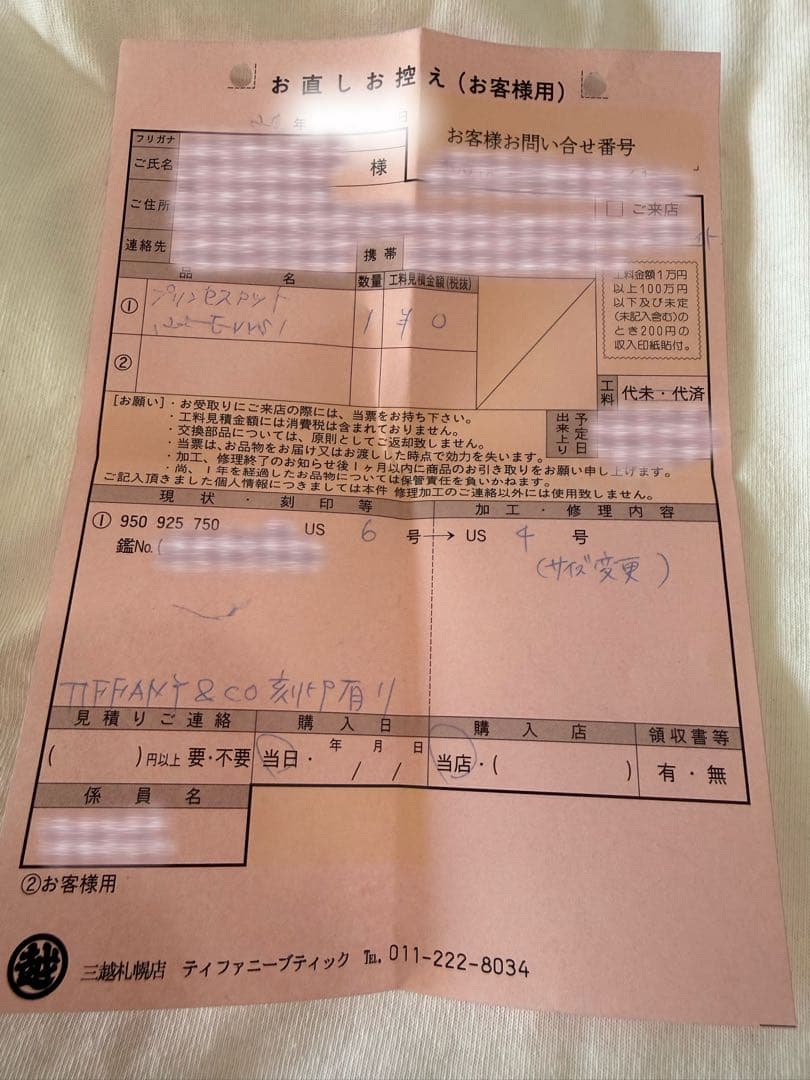 お直しお控え(お客様用)
年 日
お客様お問い合せ番号
フリガナ
ご氏名 様
ご住所
ご来店
連絡先 携帯
品 名 数量 工料見積金額(税抜)
① プリンセスカット 1 ¥0
②
工料金額1万円
以上100万円
以下及び未定
(未記入含む)の
とき200円の
収入印紙貼付。
工料 代未・代済
出来上り予定日
[お願い]・お受取りにご来店の際には、当票をお持ち下さい。
・工料見積金額には消費税は含まれておりません。
・交換部品については、原則としてご返却致しません。
・当票は、お品物をお届け又はお渡しした時点で効力を失います。
・加工、修理終了のお知らせ後1ヶ月以内に商品のお引き取りをお願い申し上げます。
・尚、1年を経過したお品物については保管責任を負いかねます。
ご記入頂きました個人情報につきましては本件 修理加工のご連絡以外には使用致しません。
現状・刻印等 加工・修理内容
① 950 925 750 US 6 号 → US 4 号
鑑No.(
(サイズ変更)
TIFFANY & CO 刻印有り
見積りご連絡 購入日 購入店 領収書等
( )円以上 要・不要 当日・ 年 月 日 / / 当店・( ) 有・無
係員名
②お客様用
越 三越札幌店 ティファニーブティック TEL. 011-222-8034